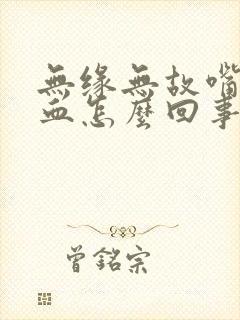 無緣無故嘴
血怎麼回事
曾銘宗